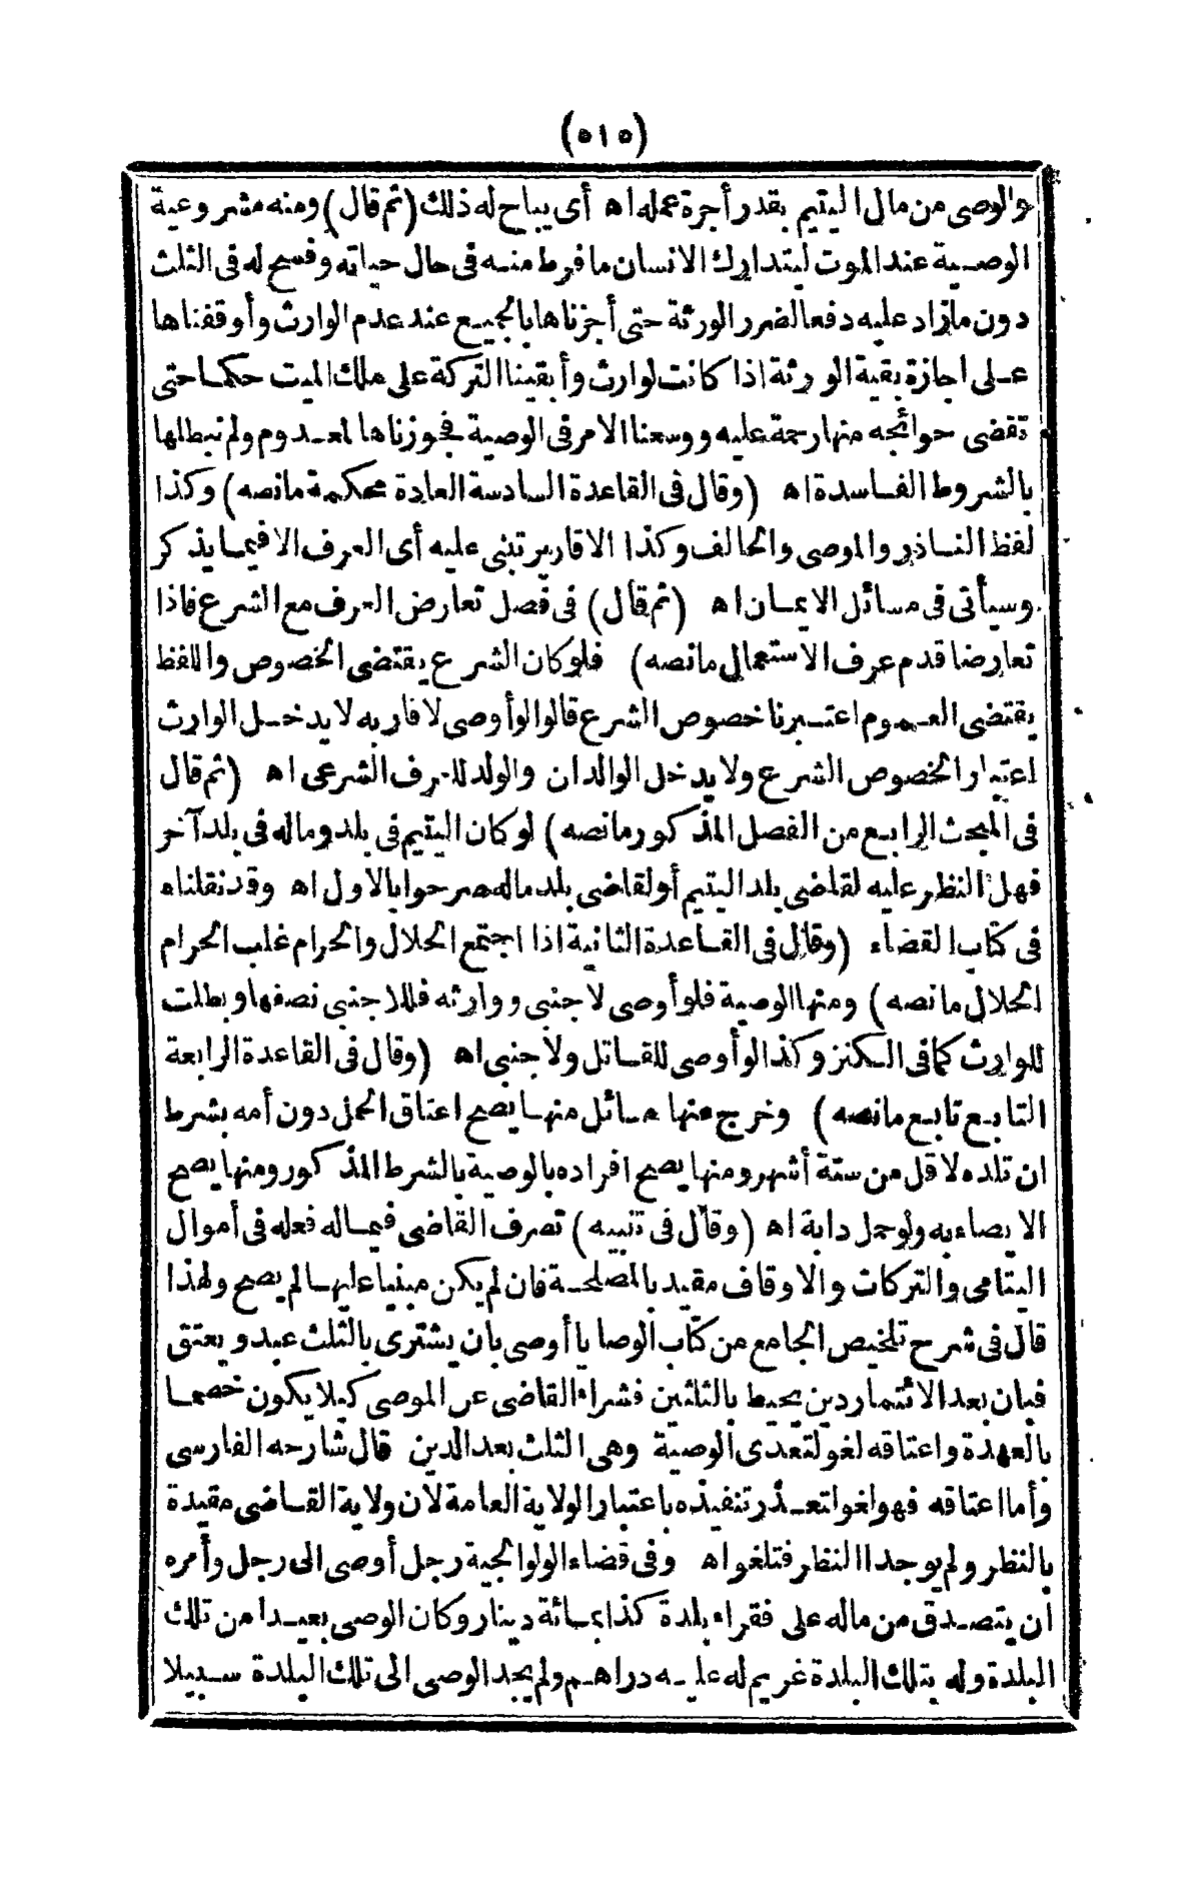 (٥١٥)
والوصى من مال اليتيم بقدر أجرة عمله اه أى يباح له ذلك (ثم قال) ومنه مشروعية
الوصية عند الموت ليتدارك الانسان ما فرط منه فى حال حياته وفسح له فى الثلث
دون ما زاد عليه دفعا لضرر الورثة حتى أجزناها بالجميع عند عدم الوارث وأوقفناها
على اجازة بقية الورثة اذا كانت لوارث وأبقينا التركة على ملك الميت حكما حتى
تقضى حوائجه منها رحمة عليه ووسعنا الامر فى الوصية فجوزناها لمعدوم ولم نبطلها
بالشروط الفاسدة اه (وقال فى القاعدة السادسة العادة محكمة ما نصه) وكذا
لفظ الناذر والموصى والحالف وكذا الاقارير تبنى عليه أى العرف الا فيما يذكر
وسيأتى فى مسائل الايمان اه (ثم قال) فى فصل تعارض العرف مع الشرع فاذا
تعارضا قدم عرف الاستعمال ما نصه) فلو كان الشرع يقتضى الخصوص واللفظ
يقتضى العموم اعتبرنا خصوص الشرع قالوا لو أوصى لاقاربه لا يدخل الوارث
اعتبارا لخصوص الشرع ولا يدخل الوالدان والولد للعرف الشرعى اه (ثم قال
فى المبحث الرابع من الفصل المذكور ما نصه) لو كان اليتيم فى بلد وماله فى بلد آخر
فهل النظر عليه لقاضى بلد اليتيم أو لقاضى بلد ماله صرحوا بالاول اه وقد نقلناه
فى كتاب القضاء (وقال فى القاعدة الثانية اذا اجتمع الحلال والحرام غلب الحرام
الحلال ما نصه) ومنها الوصية فلو أوصى لاجنبى ووارثه فللاجنبى نصفها وبطلت
للوارث كما فى الكنز وكذا لو أوصى للقاتل ولاجنبى اه (وقال فى القاعدة الرابعة
التابع تابع ما نصه) وخرج منها مسائل منها يصح اعتاق الحمل دون أمه بشرط
ان تلده لاقل من ستة أشهر ومنها يصح افراده بالوصية بالشرط المذكور ومنها يصح
الايصاء به ولو حمل دابة اه (وقال فى تنبيه) تصرف القاضى فيما له فعله فى أموال
اليتامى والتركات والاوقاف مقيد بالمصلحة فان لم يكن مبنيا عليها لم يصح ولهذا
قال فى شرح تلخيص الجامع من كتاب الوصايا أوصى بان يشترى بالثلث عبد ويعتق
فبان بعد الائتمار دين يحيط بالثلثين فشراء القاضى عن الموصى كيلا يكون خصما
بالعهدة واعتاقه لغو لتعدى الوصية وهى الثلث بعد الدين قال شارحه الفارسى
وأما اعتاقه فهو لغو لتعذر تنفيذه باعتبار الولاية العامة لان ولاية القاضى مقيدة
بالنظر ولم يوجد النظر فتلغو اه وفى قضاء الولوالجية رجل أوصى الى رجل وأمره
أن يتصدق من ماله على فقراء بلدة كذا بمائة دينار وكان الوصى بعيدا من تلك
البلدة وله بتلك البلدة غريم له عليه دراهم ولم يجد الوصى الى تلك البلدة سبيلا